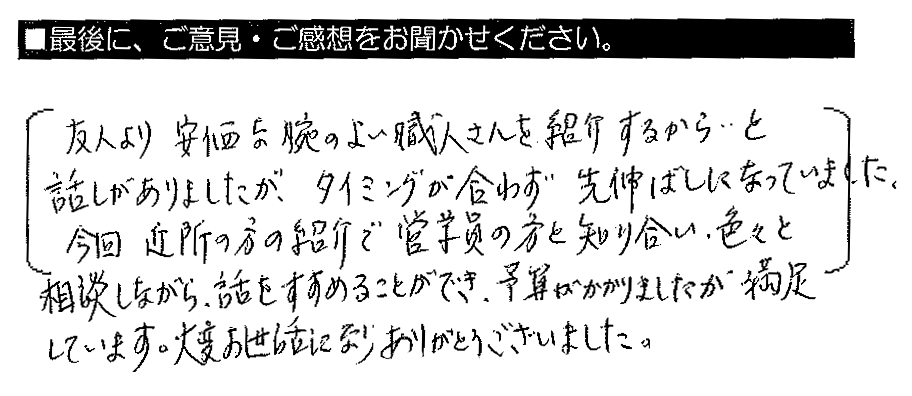 ■最後に、ご意見・ご感想をお聞かせください。
友人より 安価な腕のよい職人さんを紹介するから‥と
話しがありましたが、タイミングが合わず 先伸ばしになっていました。
今回 近所の方の紹介で 営業員の方と知り合い、色々と
相談しながら、話をすすめることができ、予算がかかりましたが 満足
しています。大変お世話になりありがとうございました。